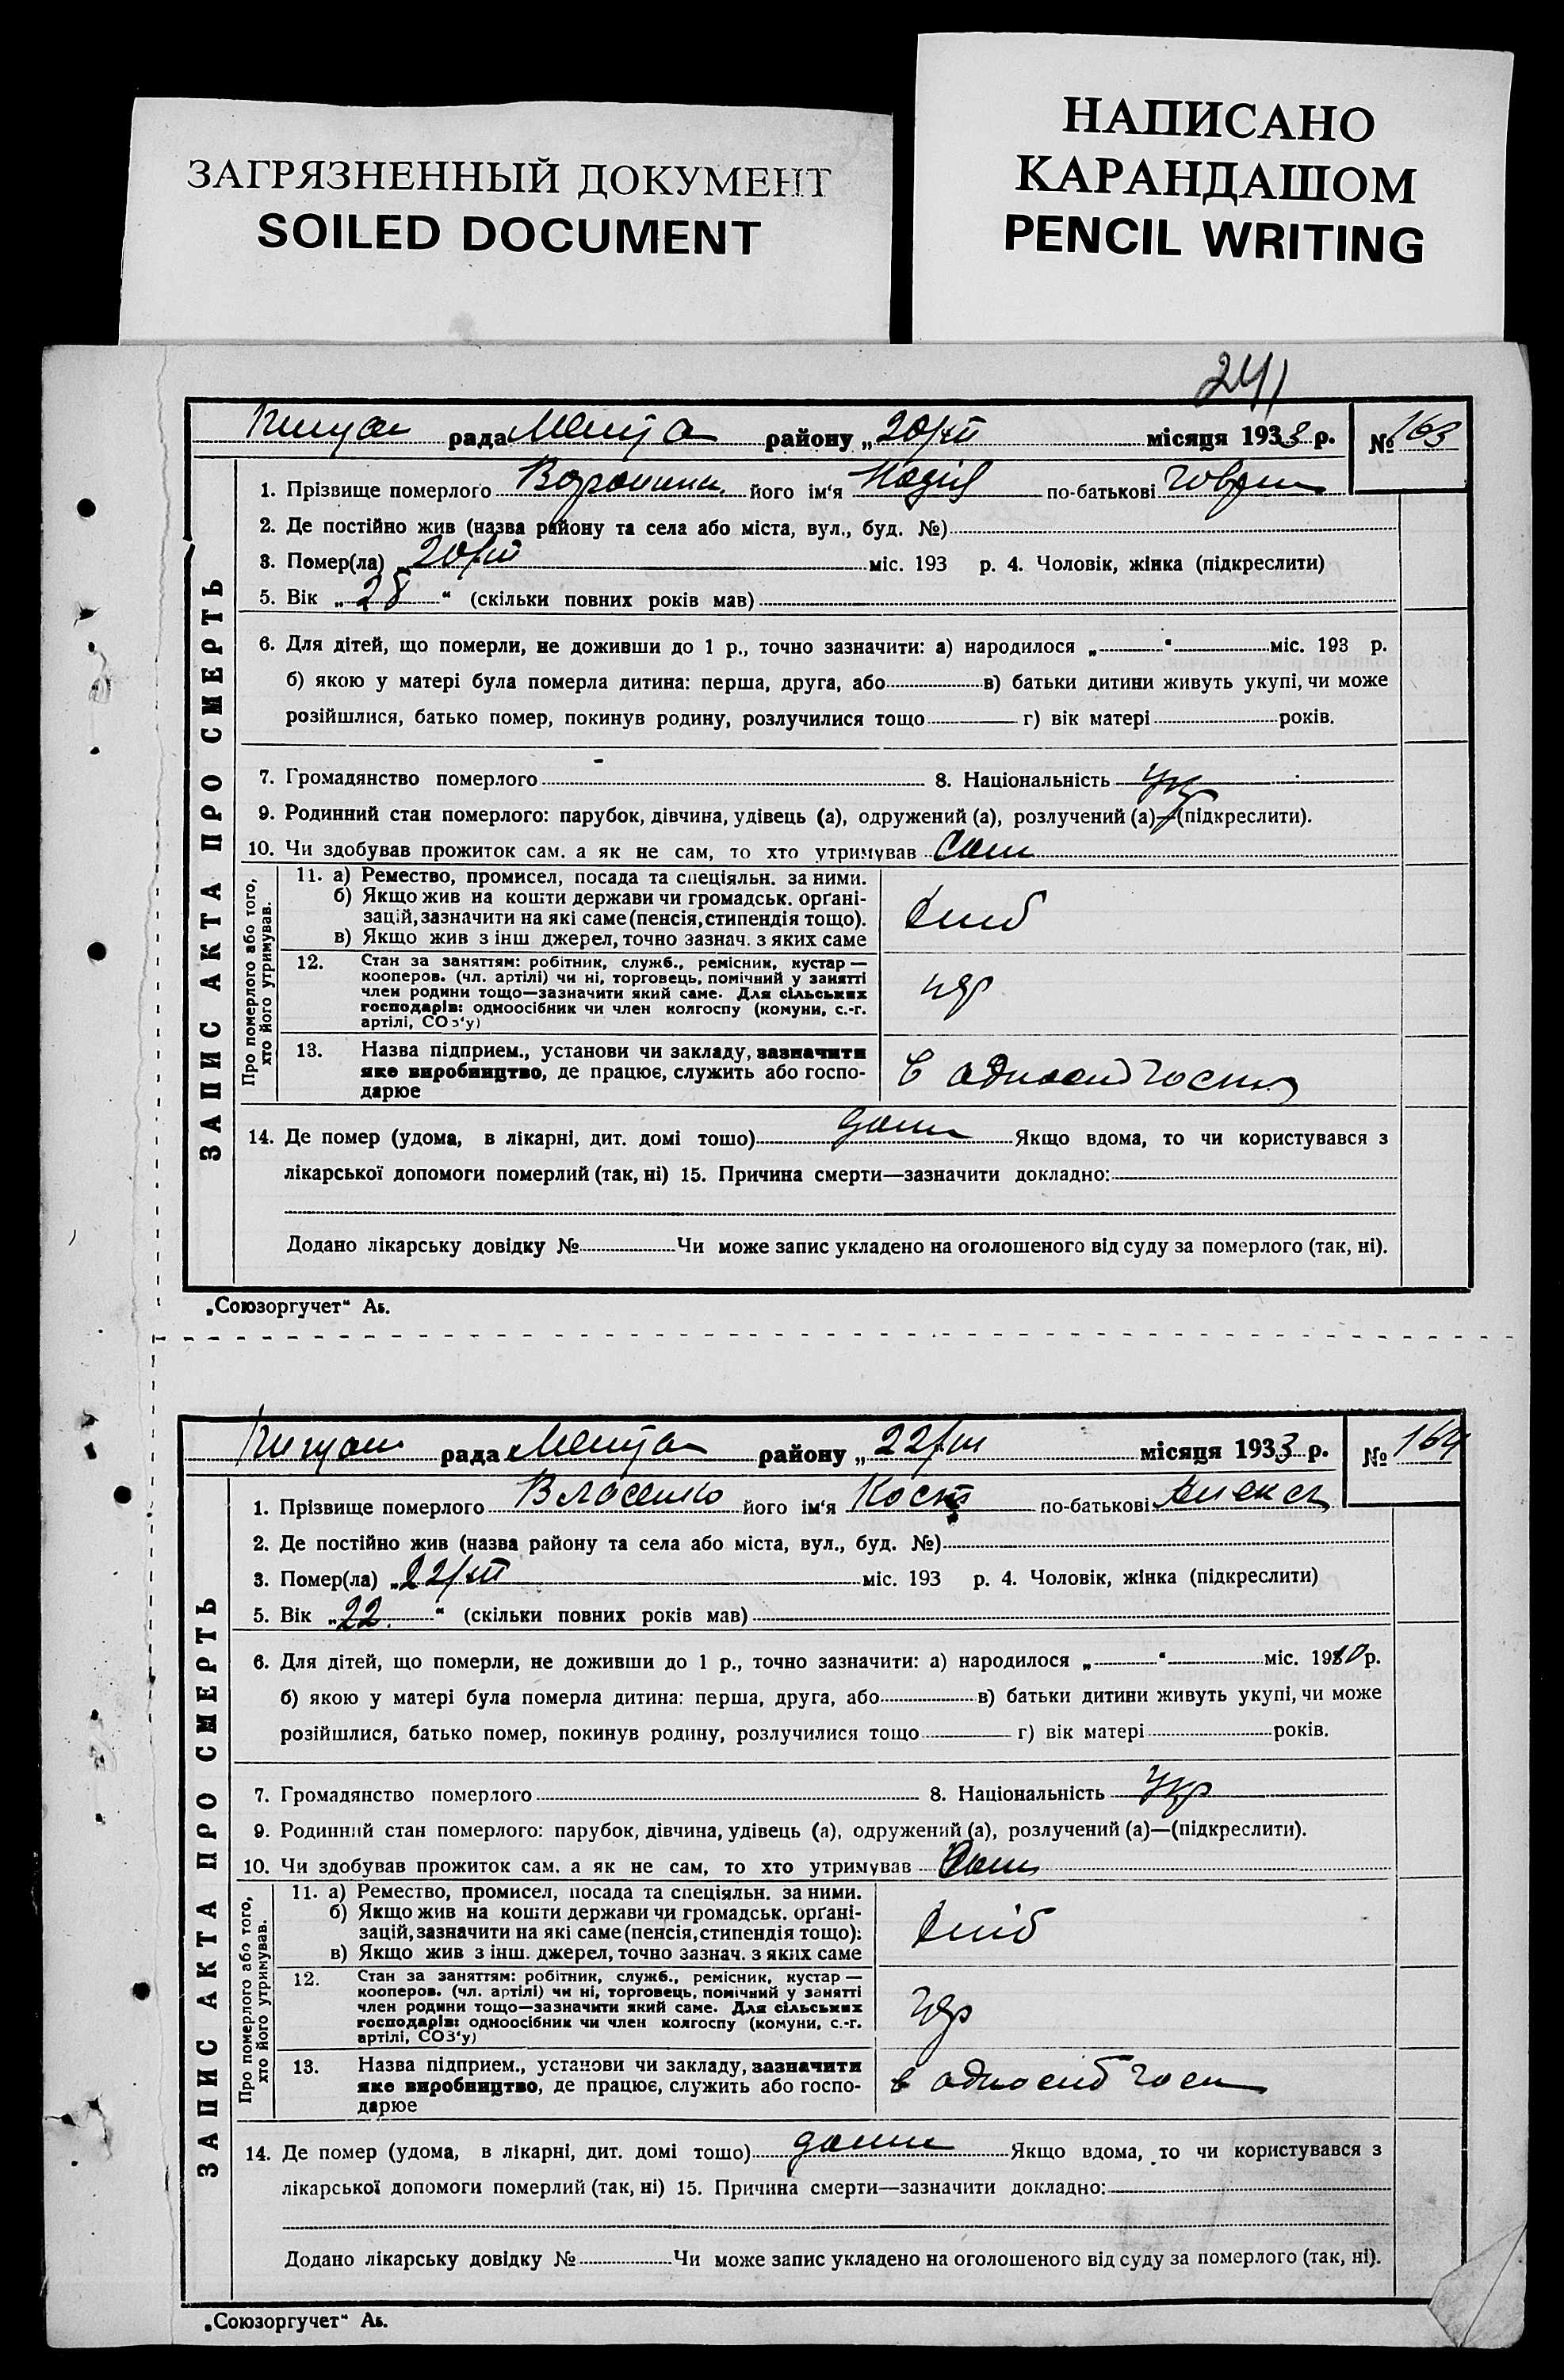 ЗАГРЯЗНЕННЫЙ ДОКУМЕНТ
SOILED DOCUMENT
НАПИСАНО
КАРАНДАШОМ
PENCIL WRITING
241
рада района „20/III місяця 1933 р. № 163
ЗАПИС АКТА ПРО СМЕРТЬ
1. Прізвище померлого його ім‘я Надія по-батькові
2. Де постійно жив (назва району та села або міста, вул., буд. №)
3. Помер(ла) „20/III міс. 193 р. 4. Чоловік, жінка (підкреслити)
5. Вік „28“ (скільки повних років мав)
6. Для дітей, що померли, не доживши до 1 р., точно зазначити: а) народилося „ “ міс. 193 р.
б) якою у матері була померла дитина: перша, друга, або в) батьки дитини живуть укупі, чи може
розійшлися, батько помер, покинув родину, розлучилися тощо г) вік матері років.
7. Громадянство померлого 8. Національність укр
9. Родинний стан померлого: парубок, дівчина, удівець (а), одружений (а), розлучений (а)—(підкреслити).
10. Чи здобував прожиток сам. а як не сам, то хто утримував Сам
Про померлого або того, хто його утримував.
11. а) Ремество, промисел, посада та спеціяльн. за ними.
б) Якщо жив на кошти держави чи громадськ. орґані-
зацій, зазначити на які саме (пенсія, стипендія тощо).
в) Якщо жив з інш джерел, точно зазнач. з яких саме
хліб
12. Стан за заняттям: робітник, служб., ремісник, кустар —
кооперов. (чл. артілі) чи ні, торговець, помічний у занятті
член родини тощо—зазначити який саме. Для сільських
господарів: одноосібник чи член колгоспу (комуни, с.-г.
артілі, СОЗ‘у)
13. Назва підприєм., установи чи закладу, зазначити
яке виробництво, де працює, служить або госпо-
дарює
в одноосиб госп
14. Де помер (удома, в лікарні, дит. домі тощо) дома Якщо вдома, то чи користувався з
лікарської допомоги померлий (так, ні) 15. Причина смерти—зазначити докладно:
Додано лікарську довідку № Чи може запис укладено на оголошеного від суду за померлого (так, ні).
„Союзоргучет“ Аб.
рада району „22/III місяця 1933 р. № 164
ЗАПИС АКТА ПРО СМЕРТЬ
1. Прізвище померлого Власенко його ім‘я Кост по-батькові Алекс
2. Де постійно жив (назва району та села або міста, вул., буд. №)
3. Помер(ла) „22/III міс. 193 р. 4. Чоловік, жінка (підкреслити)
5. Вік „22.“ (скільки повних років мав)
6. Для дітей, що померли, не доживши до 1 р., точно зазначити: а) народилося „ “ міс. 19 р.
б) якою у матері була померла дитина: перша, друга, або в) батьки дитини живуть укупі, чи може
розійшлися, батько помер, покинув родину, розлучилися тощо г) вік матері років.
7. Громадянство померлого 8. Національність Укр
9. Родинний стан померлого: парубок, дівчина, удівець (а), одружений (а), розлучений (а)—(підкреслити).
10. Чи здобував прожиток сам. а як не сам, то хто утримував Сам
Про померлого або того, хто його утримував.
11. а) Ремество, промисел, посада та спеціяльн. за ними.
б) Якщо жив на кошти держави чи громадськ. орґані-
зацій, зазначити на які саме (пенсія, стипендія тощо):
в) Якщо жив з інш. джерел, точно зазнач. з яких саме
хліб
12. Стан за заняттям: робітник, служб., ремісник, кустар —
кооперов. (чл. артілі) чи ні, торговець, помічний у занятті
член родини тощо—зазначити який саме. Для сільських
господарів: одноосібник чи член колгоспу (комуни, с.-г.
артілі, СОЗ‘у)
13. Назва підприєм., установи чи закладу, зазначити
яке виробництво, де працює, служить або госпо-
дарює
в одноосиб госп
14. Де помер (удома, в лікарні, дит. домі тощо) дома Якщо вдома, то чи користувався з
лікарської допомоги померлий (так, ні) 15. Причина смерти—зазначити докладно:
Додано лікарську довідку № Чи може запис укладено на оголошеного від суду за померлого (так, ні).
„Союзоргучет“ Аб.